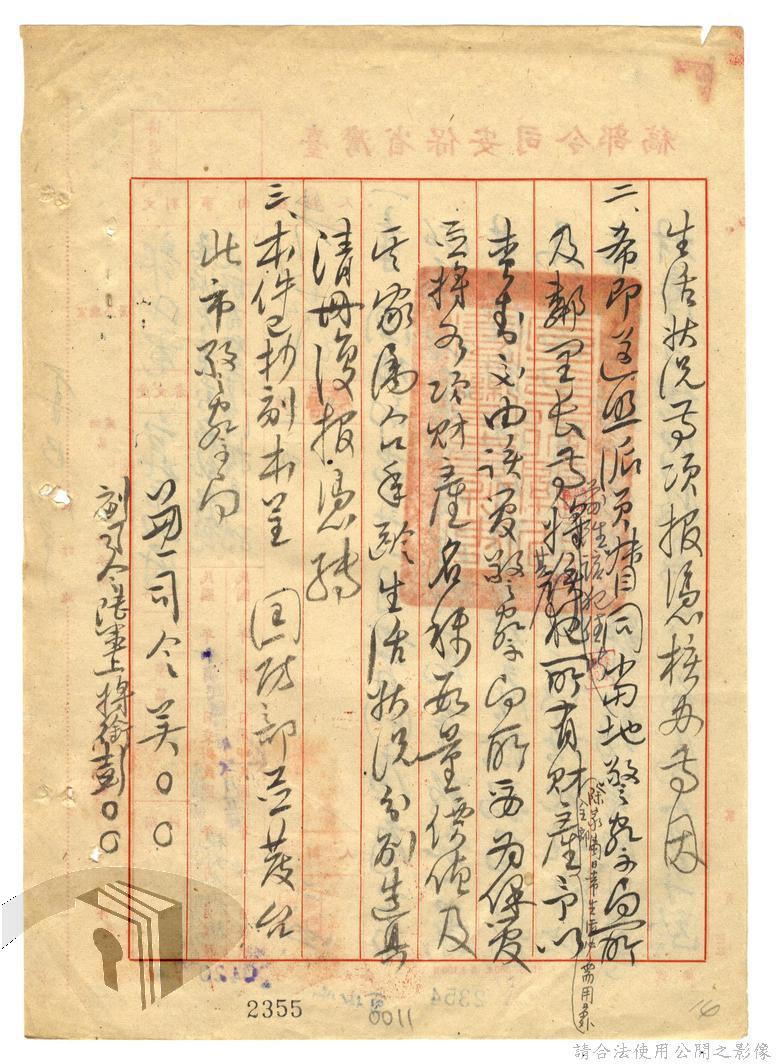 生活狀況等項報憑核办等因
二、希即遵照派員偕同當地警察局所
及鄰里長等將該犯所有財產予以
(除家屬日常生活必需用品外)
查封交由該管警察局所妥為保管
並將各項財產名稱數量價值及
其家屬人口年齡生活狀況分別造具
清冊復報憑轉
三、本件已抄副本呈 國防部並發台
北市警察局
兼司令吳○○
副司令陸軍上將銜彭○○
臺灣省保安司令部稿
2355
1100
2354
16
請合法使用公開之影像